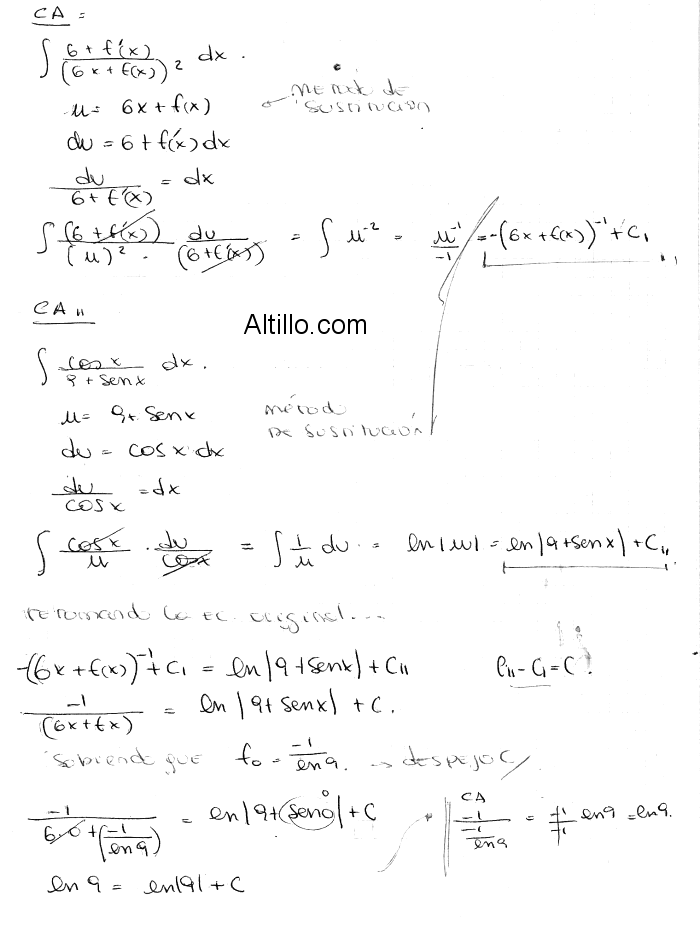 CA =
∫ (6 + f'(x))/(6x + f(x))² dx .
u = 6x + f(x)
método de sustitución
du = 6 + f'(x) dx
du/(6 + f'(x)) = dx
∫ (6 + f'(x))/(u)² . du/(6 + f'(x)) = ∫ u⁻² = u⁻¹/-1 = -(6x + f(x))⁻¹ + C₁
CA₁₁
Altillo.com
∫ cos x/(9 + sen x) dx .
u = 9 + sen x
método
de sustitución
du = cos x dx
du/cos x = dx
∫ cos x/u . du/cos x = ∫ 1/u du = ln|u| = ln|9 + sen x| + C₁₁
retomando la ec. original...
-(6x + f(x))⁻¹ + C₁ = ln|9 + sen x| + C₁₁
C₁₁ - C₁ = C
-1/(6x + fx) = ln|9 + sen x| + C .
Sabiendo que f₀ = -1/ln 9 . → despejo C
-1/(6.0 + (-1/ln 9)) = ln|9 + sen 0| + C
0
CA
-1/(-1/ln 9) = -1/-1 ln 9 = ln 9.
ln 9 = ln|9| + C